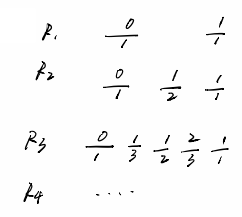 R1 0/1 1/1
R2 0/1 1/2 1/1
R3 0/1 1/3 1/2 2/3 1/1
R4 ....